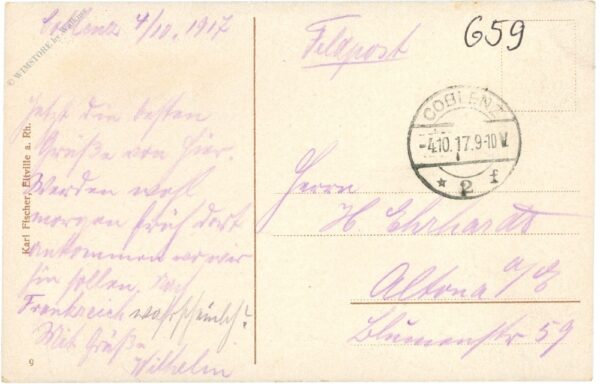 Coblenz 4/10. 1917
Jetzt die besten
Grüße von hier.
Werden wohl
morgen früh dort
ankommen wo wir
hin sollen. Nach
Frankreich wahrscheinlich?
Mit Grüße
Wilhelm
Feldpost
659
COBLENZ
-4.10.17.9-10V.
* 2 f
Herrn
H Ehrhardt
Altona a/E
Blumenstr 59
Karl Fischer, Eltville a. Rh.
9
© WIMSTORE by